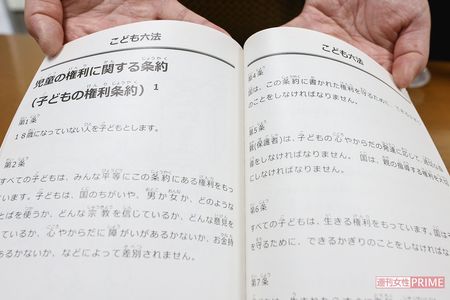 こども六法
児童の権利に関する条約
(子どもの権利条約) 1
第1条
18歳になっていない人を子どもとします。
第2条
すべての子どもは、みんな平等にこの条約にある権利をもっ
ています。子どもは、国のちがいや、男か女か、どのような
ことばを使うか、どんな宗教を信じているか、どんな意見を
っているか、心やからだに障がいがあるかないか、お金持
あるかないか、などによって差別されません。
こども六法
第4条
国は、この条約に書かれた権利を守るために、できる
のことをしなければなりません。
第5条
親(保護者)は、子どもの心やからだの発達に応じて、
をしなければなりません。国は、親の指導する権利を大切
なければなりません。
第6条
すべての子どもは、生きる権利をもっています。国は
を守るために、できるかぎりのことをしなければなり
第7条
週刊女性PRIME